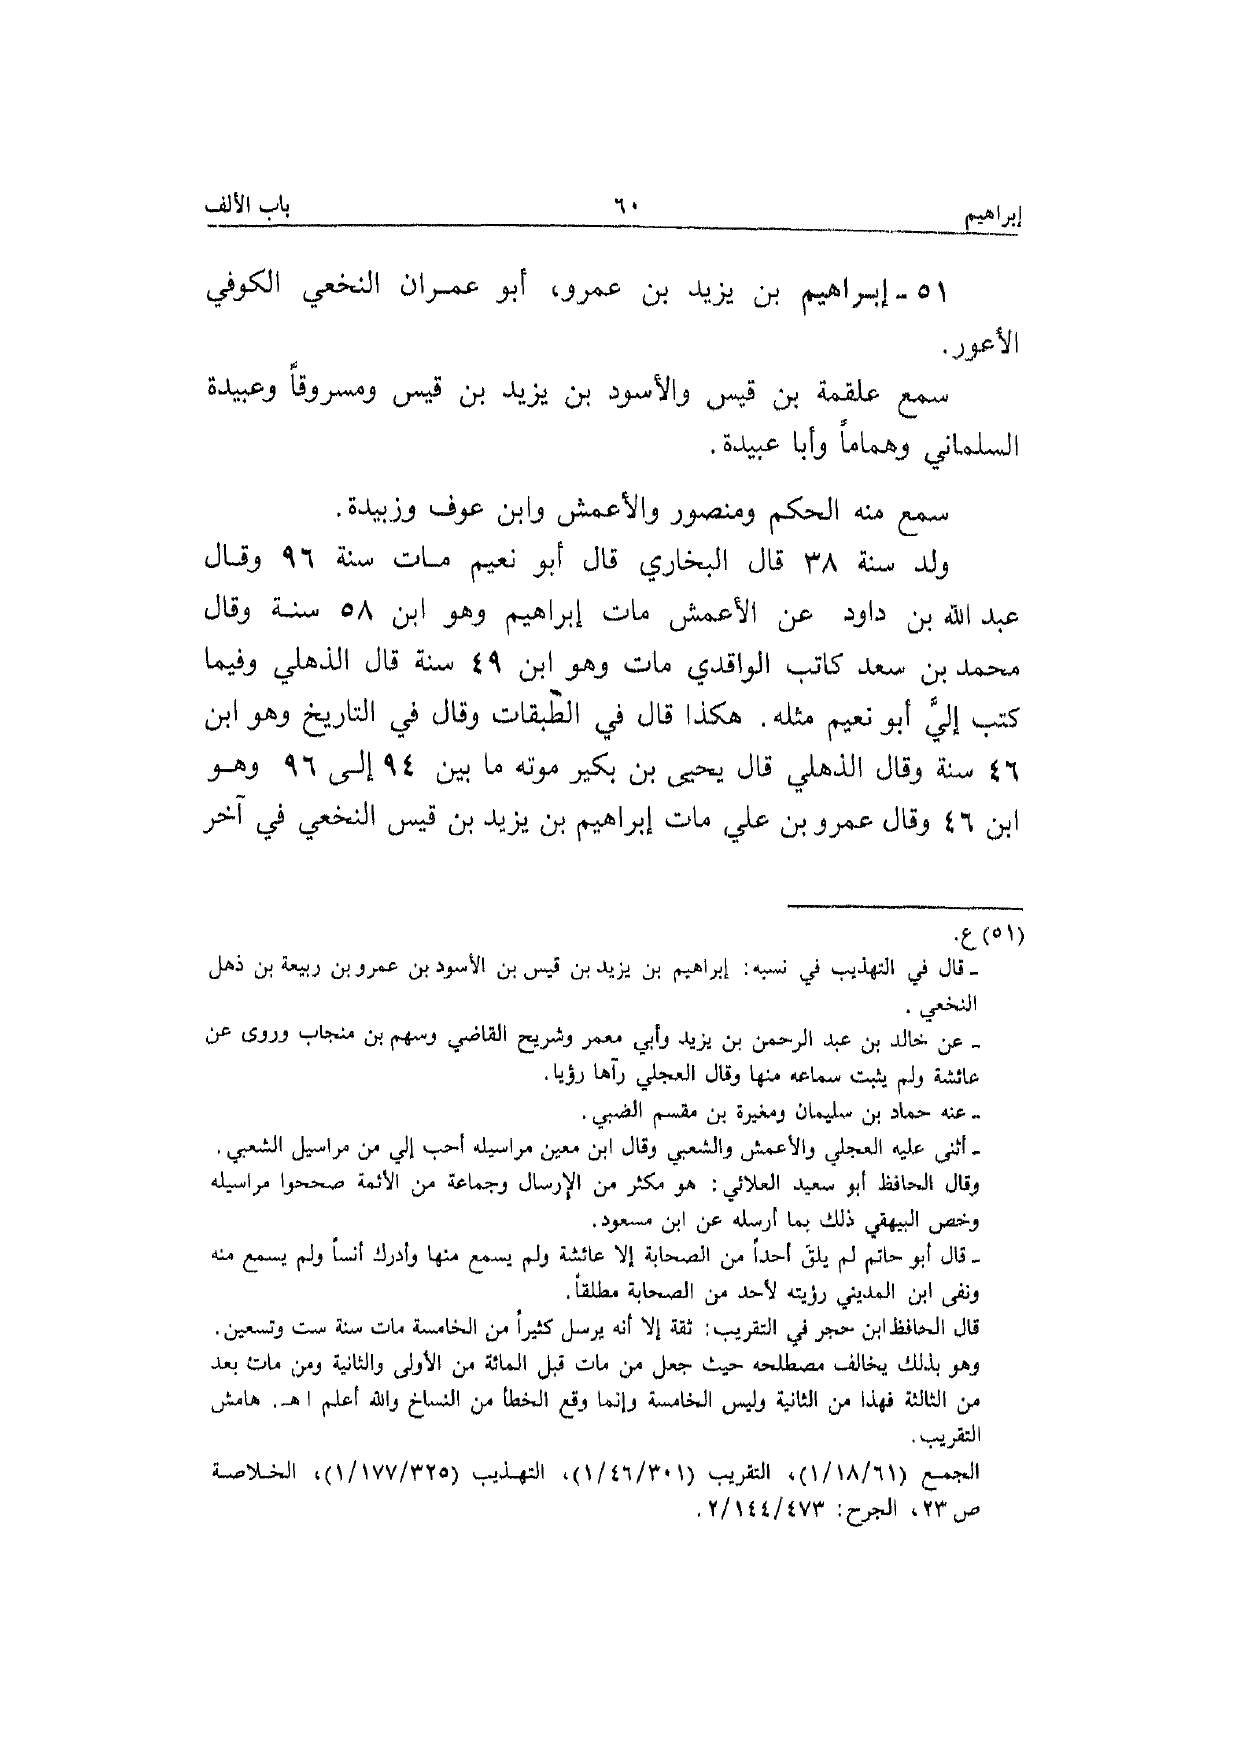 إبراهيم ٦٠ باب الألف
٥١ - إبراهيم بن يزيد بن عمرو، أبو عمران النخعي الكوفي
الأعور.
سمع علقمة بن قيس والأسود بن يزيد بن قيس ومسروقاً وعبيدة
السلماني وهماماً وأبا عبيدة.
سمع منه الحكم ومنصور والأعمش وابن عوف وزبيدة.
ولد سنة ٣٨ قال البخاري قال أبو نعيم مات سنة ٩٦ وقال
عبد الله بن داود عن الأعمش مات إبراهيم وهو ابن ٥٨ سنة وقال
محمد بن سعد كاتب الواقدي مات وهو ابن ٤٩ سنة قال الذهلي وفيما
كتب إليَّ أبو نعيم مثله. هكذا قال في الطبقات وقال في التاريخ وهو ابن
٤٦ سنة وقال الذهلي قال يحيى بن بكير موته ما بين ٩٤ إلى ٩٦ وهو
ابن ٤٦ وقال عمرو بن علي مات إبراهيم بن يزيد بن قيس النخعي في آخر
(٥١) ع.
- قال في التهذيب في نسبه: إبراهيم بن يزيد بن قيس بن الأسود بن عمرو بن ربيعة بن ذهل
النخعي.
- عن خالد بن عبد الرحمن بن يزيد وأبي معمر وشريح القاضي وسهم بن منجاب وروى عن
عائشة ولم يثبت سماعه منها وقال العجلي رآها رؤيا.
- عنه حماد بن سليمان ومغيرة بن مقسم الضبي.
- أثنى عليه العجلي والأعمش والشعبي وقال ابن معين مراسيله أحب إلي من مراسيل الشعبي.
وقال الحافظ أبو سعيد العلائي: هو مكثر من الإرسال وجماعة من الأئمة صححوا مراسيله
وخص البيهقي ذلك بما أرسله عن ابن مسعود.
- قال أبو حاتم لم يلقَ أحداً من الصحابة إلا عائشة ولم يسمع منها وأدرك أنساً ولم يسمع منه
ونفى ابن المديني رؤيته لأحد من الصحابة مطلقاً.
قال الحافظ ابن حجر في التقريب: ثقة إلا أنه يرسل كثيراً من الخامسة مات سنة ست وتسعين.
وهو بذلك يخالف مصطلحه حيث جعل من مات قبل المائة من الأولى والثانية ومن مات بعد
من الثالثة فهذا من الثانية وليس الخامسة وإنما وقع الخطأ من النساخ والله أعلم ا هـ. هامش
التقريب.
الجمع (١/١٨/٦١)، التقريب (١/٤٦/٣٠١)، التهذيب (١/١٧٧/٣٢٥)، الخلاصة
ص ٢٣، الجرح: ٢/١٤٤/٤٧٣.